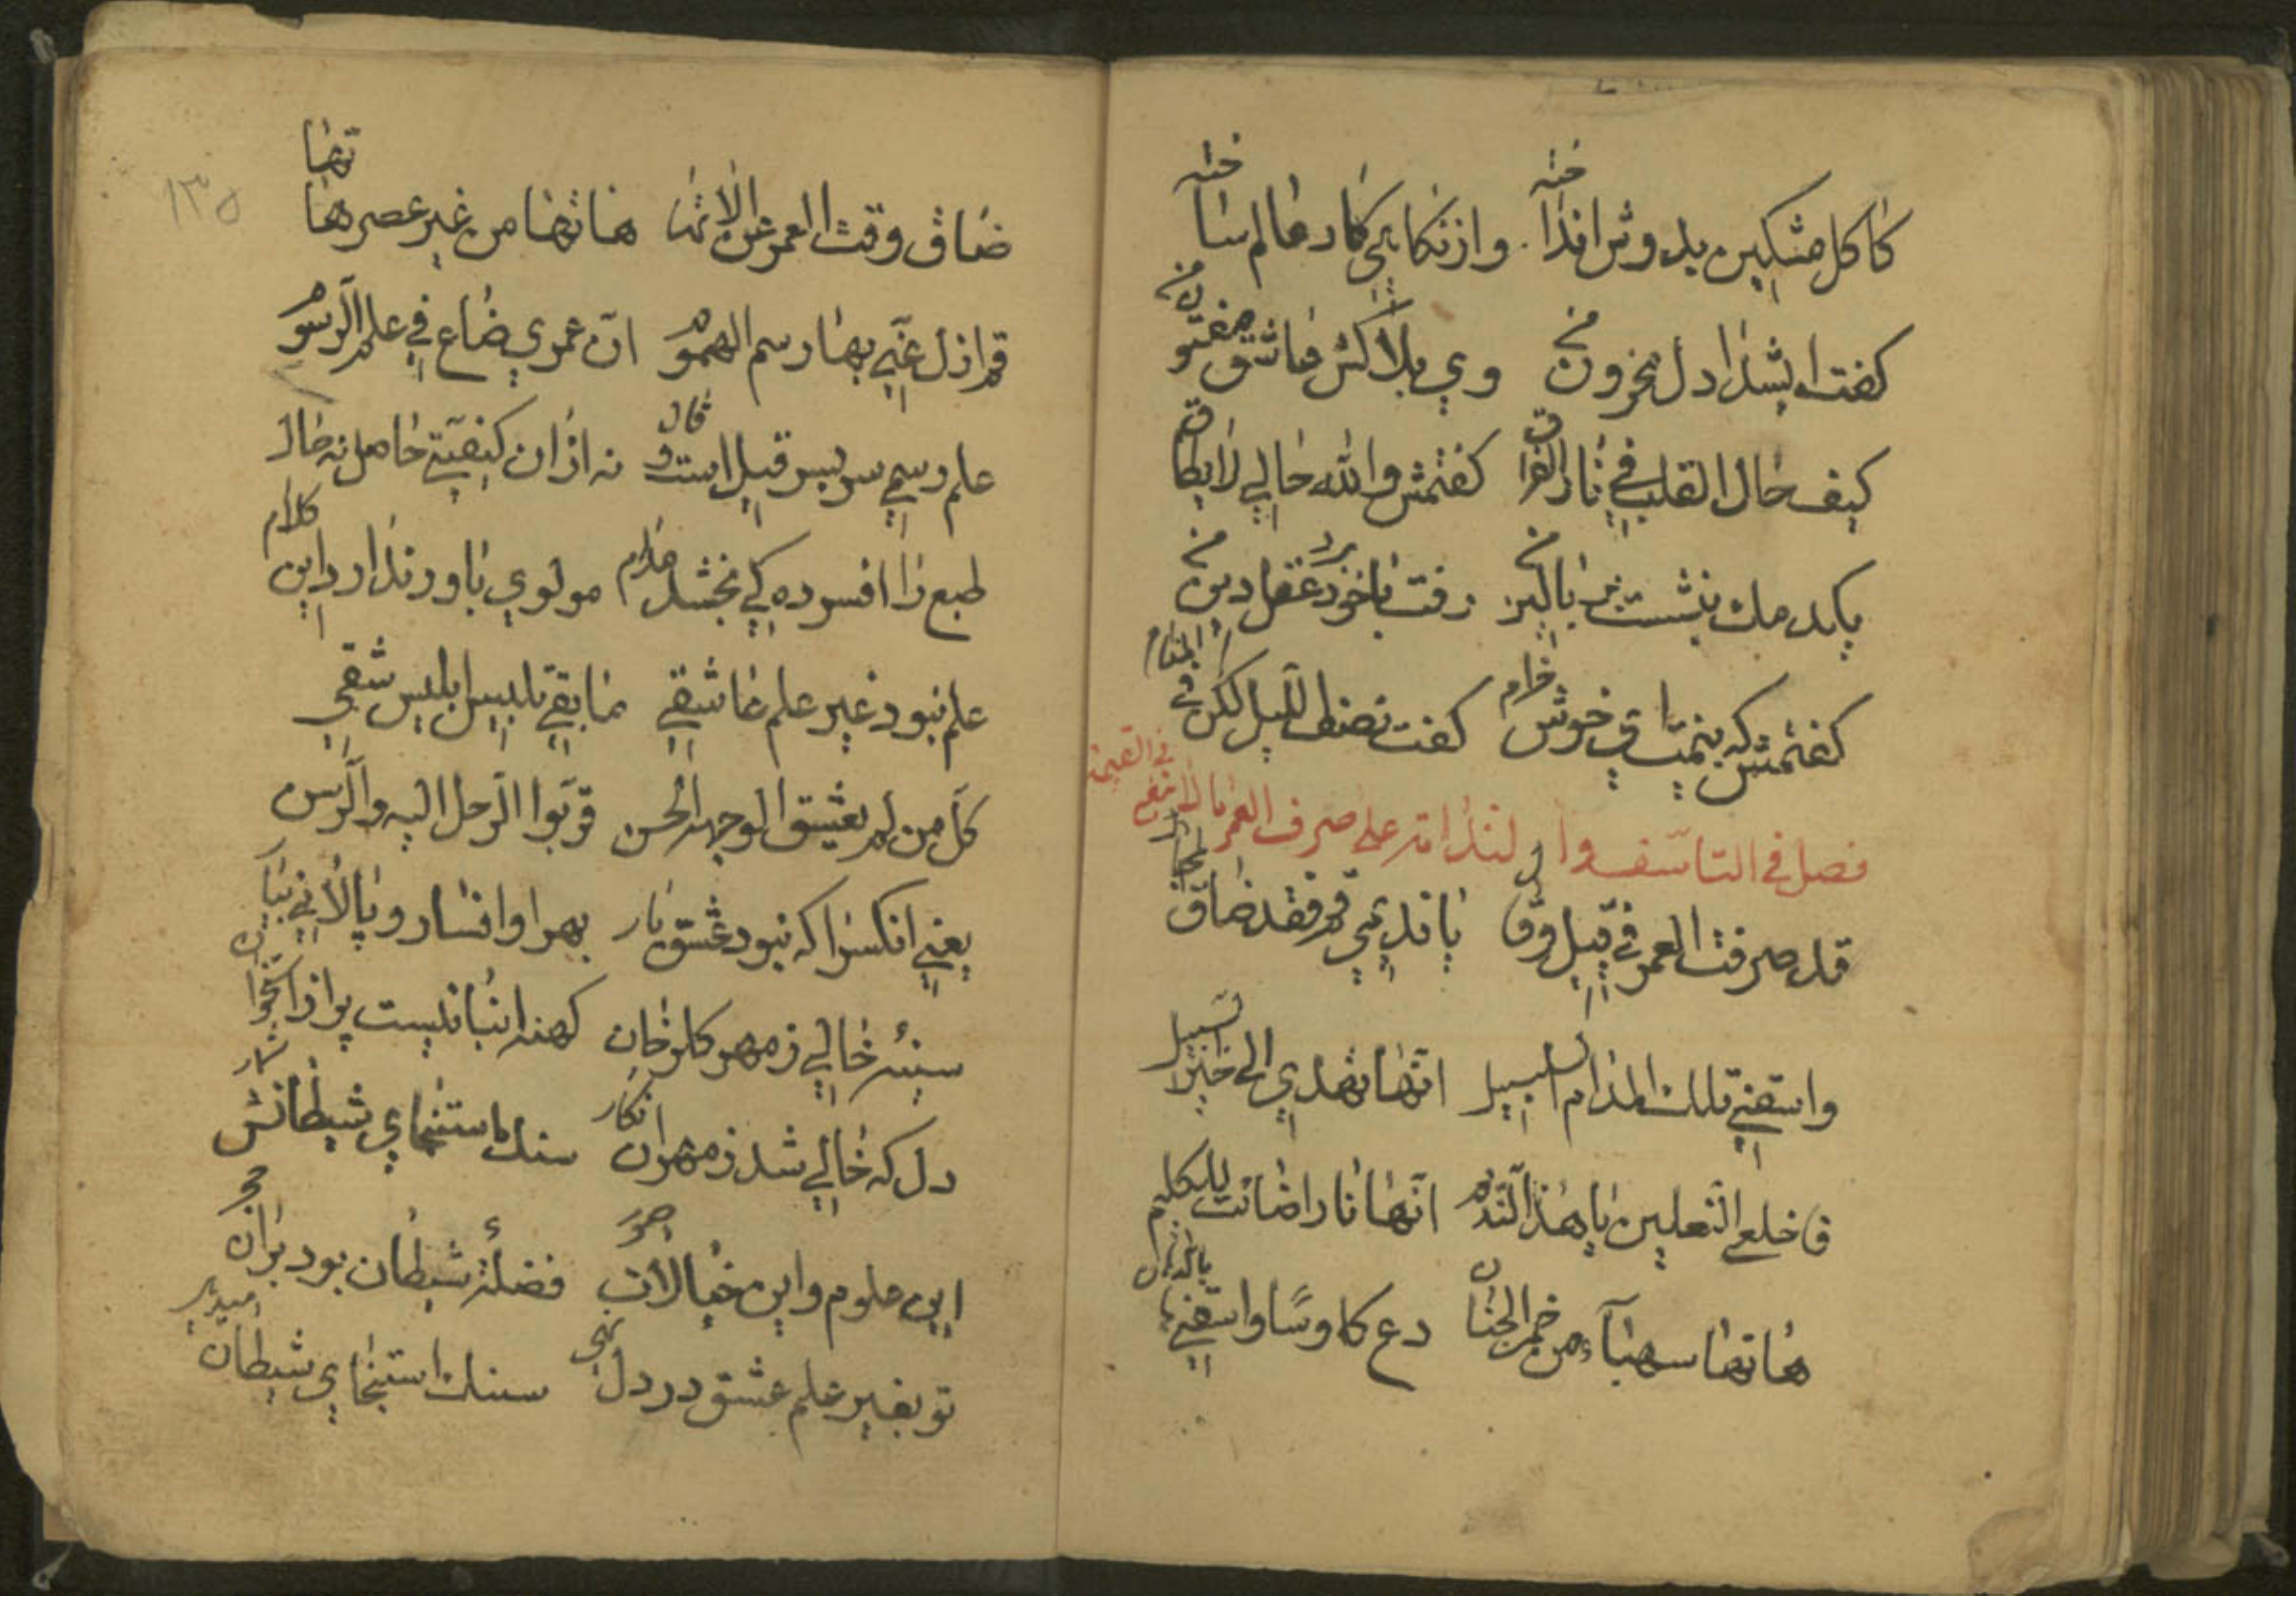 کاکل مشکین بدوش انداخته وازنکاهی کار عالم ساخته
کفت ای شیدا دل محزون من وی بلاکش عاشق مفتون من
کیف حال القلب في نار الفراق کفتمش والله حالي لا یطاق
یکدمک بنشست بر بالین من رفت باخود برد عقل ودین من
کفتمش کی بینمت ای خوش خرام کفت نصف اللیل لکن في المنام
فصل في التأسف والندامة علی صرف العمر فیما لا ینفع في القیمة
قد صرفت العمر في قیل وقال یا ندیمي قم فقد ضاق المجال
واسقني تلك المدام السلسبیل انها تهدي الی خیر السبیل
فاخلع النعلین یا هذا الندیم انها نار اضائت للکلیم
هاتها صهبآء من خمر الجنان دع کاوسًا واسقنیها بالدنان
ضاق وقت العمر عن الاتها هاتها من غیر عصر هاتها
قم ازل عني بها رسم الهموم ان عمري ضاع في علم الرسوم
علم رسمي سر بسر قیل است وقال نه ازان کیفیتي حاصل نه حال
طبع را افسرده کي بخشد مدام مولوي باور ندارد این کلام
علم نبود غیر علم عاشقي ما بقي تلبیس ابلیس شقي
کل من لم یعشق الوجه الحسن قربوا الرحل الیه والرسن
یعني انکسرا که نبود عشق یار بهر او افسار و پالاني بیار
سینهٔ خالي ز مهر کلرخان کهنه انبانیست پر از استخوان
دل که خالي شد ز مهر ان نکار سنك استنجاي شیطانش شمار
این علوم واین خیالات وصور فضلهٔ شیطان بود بران حجر
تو بغیر علم عشق ار دل نهي سنك استنجاي شیطان میدهي
١٣٥